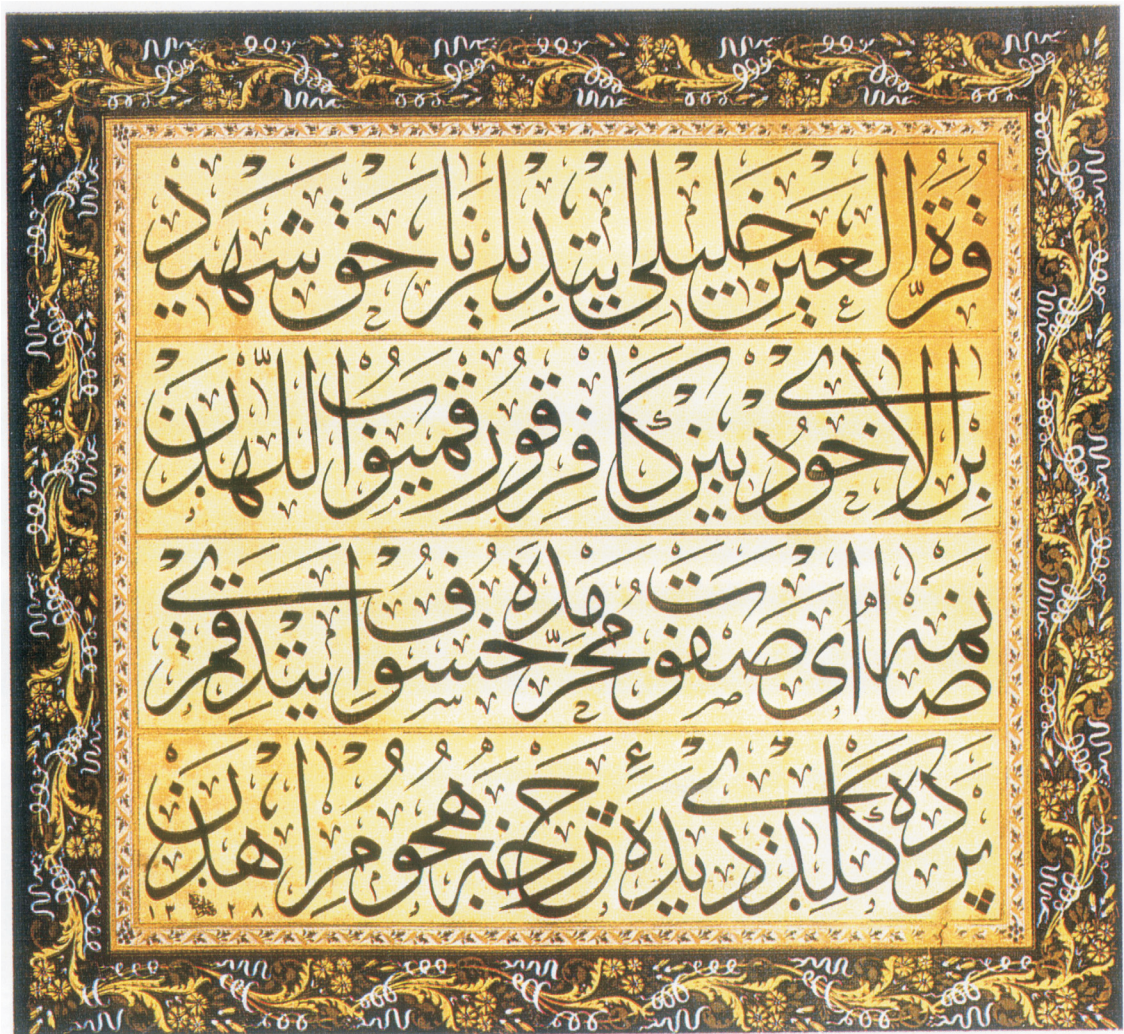 قرة العين خليلى ايتديلر ناحق شهيد
بر الاى خودبين كافر قورقميوب اللهدن
صانمه اى صفوت محرمده خسوف ايتدى قمر
پرده كلدى ديدهٔ چرخه هجوم اهدن
١٣٢٨